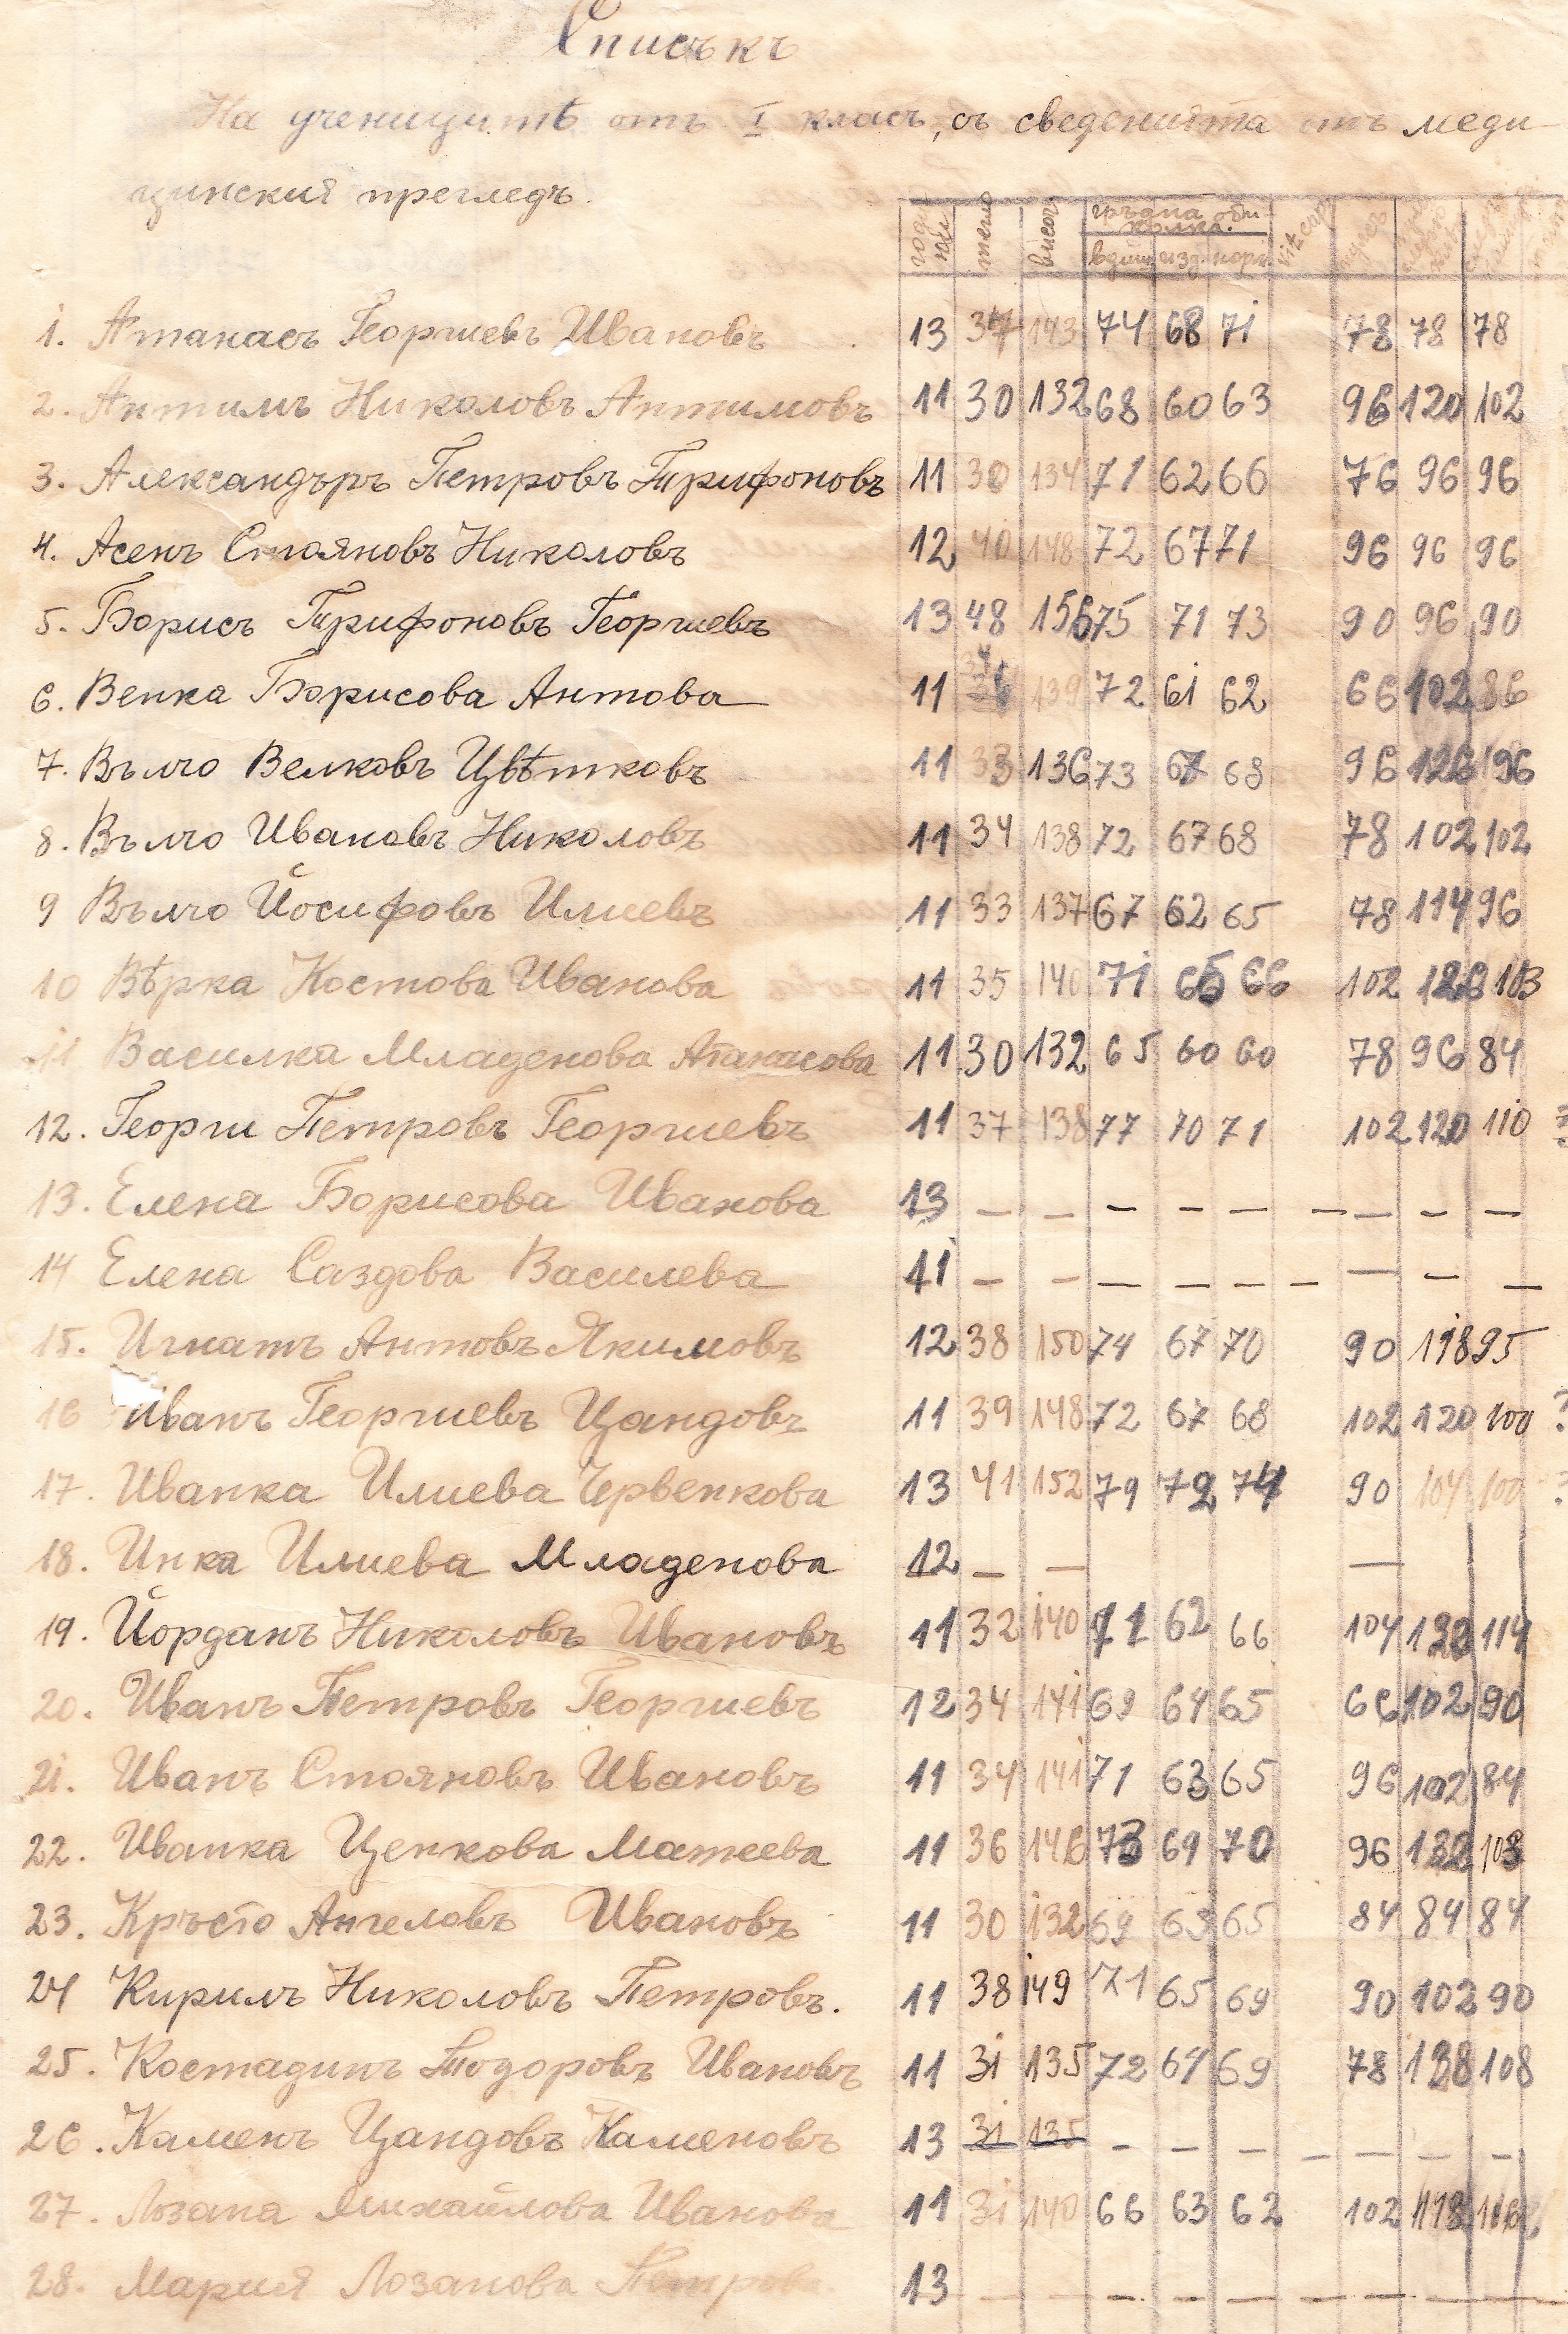 Списъкъ
На ученицитѣ отъ I класъ, съ сведенията отъ меди-
цинския прегледъ.
годи ни тегло височ. гръдна обиколка. vit cap
вдиш. изд. норм.
1. Атанасъ Георгиевъ Ивановъ 13 37 143 74 68 71 78 78 78
2. Антимъ Николовъ Антимовъ 11 30 132 68 60 63 96 120 102
3. Александъръ Петровъ Трифоновъ 11 30 134 71 62 66 76 96 96
4. Асенъ Стояновъ Николовъ 12 40 148 72 67 71 96 96 96
5. Борисъ Трифоновъ Георгиевъ 13 48 156 75 71 73 90 96 90
6. Венка Борисова Антова 11 139 72 61 62 66 102 86
7. Вълчо Велковъ Цвѣтковъ 11 33 136 73 67 68 96 126 96
8. Вълчо Ивановъ Николовъ 11 34 138 72 67 68 78 102 102
9 Вълчо Йосифовъ Илиевъ 11 33 137 67 62 65 78 114 96
10 Вѣрка Костова Иванова 11 35 140 71 65 66 102 126 103
11 Василка Младенова Атанасова 11 30 132 65 60 60 78 96 84
12. Георги Петровъ Георгиевъ 11 37 138 77 70 71 102 120 110 ?
13. Елена Борисова Иванова 13 — — — — — — — — —
14 Елена Саздова Василева 11 — — — — — — — — —
15. Игнатъ Антовъ Якимовъ 12 38 150 74 67 70 90 198 95
16 Иванъ Георгиевъ Цандовъ 11 39 148 72 67 68 102 120 100 ?
17. Иванка Илиева Червенкова 13 41 152 79 72 74 90 104 100 ?
18. Инка Илиева Младенова 12 — — —
19. Йорданъ Николовъ Ивановъ 11 32 140 71 62 66 104 132 114
20. Иванъ Петровъ Георгиевъ 12 34 141 69 64 65 66 102 90
21. Иванъ Стояновъ Ивановъ 11 34 141 71 63 65 96 102 84
22. Иванка Ценкова Матеева 11 36 146 73 69 70 96 132 108
23. Кръсто Ангеловъ Ивановъ 11 30 132 69 63 65 84 84 84
24 Кирилъ Николовъ Петровъ. 11 38 149 71 65 69 90 102 90
25. Костадинъ Тодоровъ Ивановъ 11 31 135 72 64 69 78 138 108
26. Каменъ Цандовъ Каменовъ 13 31 135 — — — — — — —
27. Лозана Михайлова Иванова 11 31 140 66 63 62 102
28. Мария Лозанова Петрова 13 — — — — — — — — —